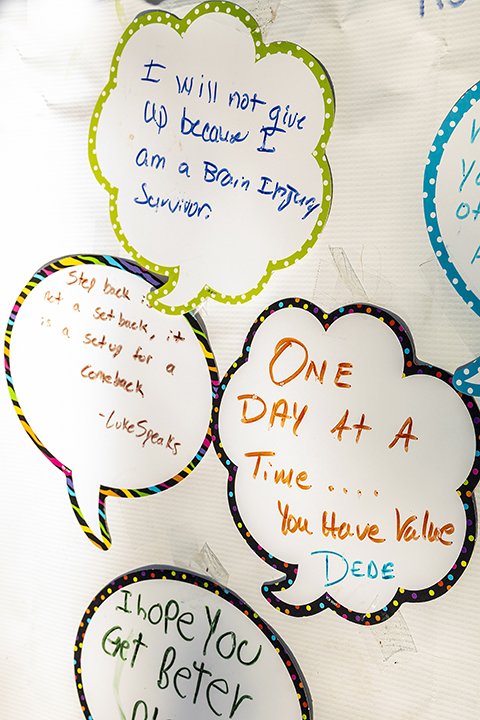 I will not give
up because I
am a Brain Injury
Survivor.
Step back is
not a set back, it
is a setup for a
comeback
-LukeSpeaks
ONE
DAY At A
Time ....
You Have Value
DEDE
I hope You
Get Beter